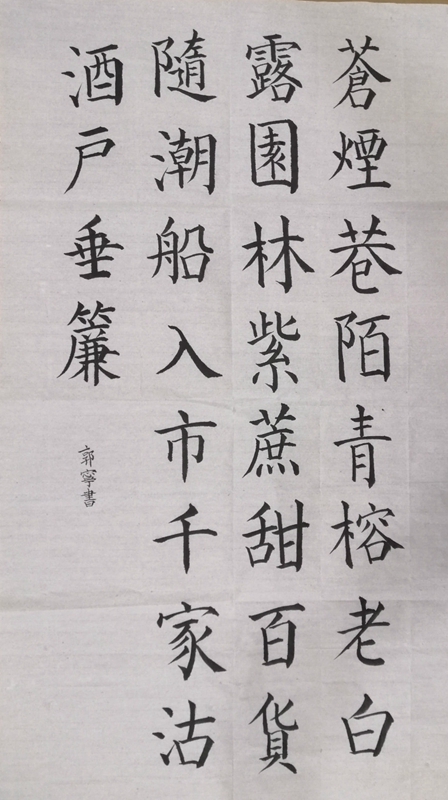 蒼煙巷陌青榕老白
露園林紫蔗甜百貨
隨潮船入市千家沽
酒戶垂簾
郭寧書